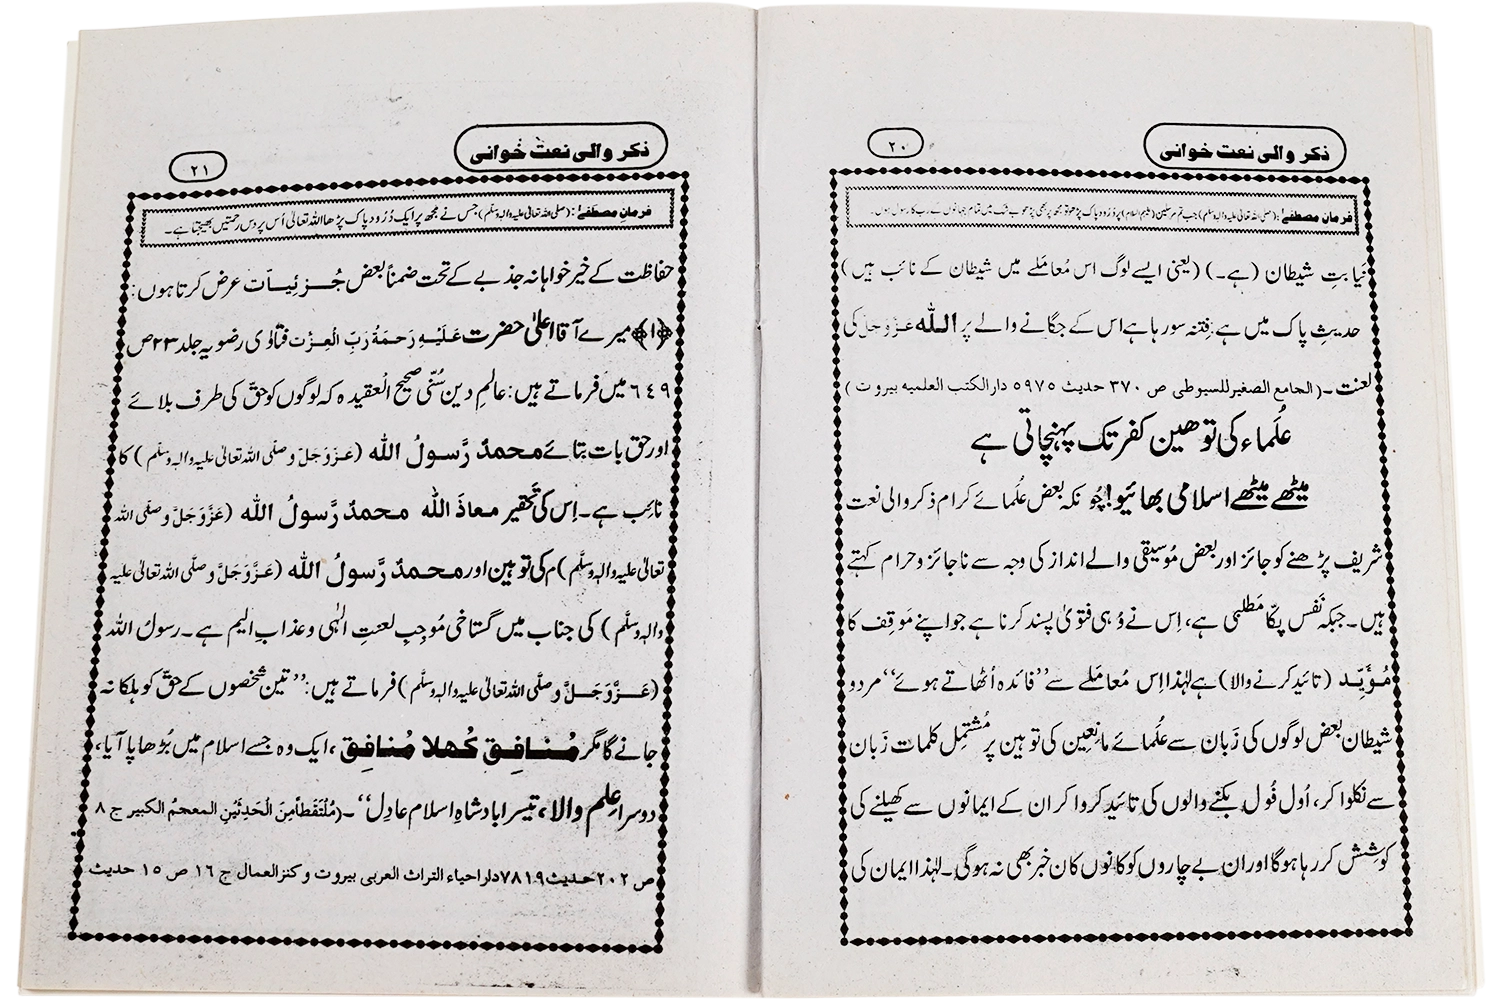 ذکر والی نعت خوانی
۲۰
فرمانِ مصطفیٰ: (صلی اللہ تعالیٰ علیہ والہٖ وسلّم) جب تم مرسلین (علیہم السلام) پر دُرُود پاک پڑھو تو مجھ پر بھی پڑھو بے شک میں تمام جہانوں کے رب کا رسول ہوں۔
نِیابتِ شیطان (ہے۔) (یعنی ایسے لوگ اس مُعامَلے میں شیطان کے نائب ہیں)
حدیثِ پاک میں ہے: فِتنہ سو رہا ہے اس کے جگانے والے پر اللہ عَزَّوَجَلَّ کی
لعنت۔ (الجامع الصغیر للسیوطی ص ۳۷۰ حدیث ۵۹۷۵ دارالکتب العلمیہ بیروت)
عُلَماء کی توھین کفر تک پہنچاتی ہے
میٹھے میٹھے اسلامی بھائیو! چُونکہ بعض عُلَمائے کرام ذکر والی نعت
شریف پڑھنے کو جائز اور بعض مُوسیقی والے انداز کی وجہ سے ناجائز و حرام کہتے
ہیں۔ جبکہ نَفس پکّا مَطلبی ہے، اِس نے وُہی فتویٰ پسند کرنا ہے جو اپنے مَوقِف کا
مُؤَیِّد (تائید کرنے والا) ہے لہٰذا اِس مُعامَلے سے ’’فائدہ اُٹھاتے ہوئے‘‘ مردود
شیطان بعض لوگوں کی زَبان سے عُلَمائے مانِعین کی توہین پر مُشتَمِل کلمات زَبان
سے نکلوا کر، اُول فُول بکنے والوں کی تائید کروا کر ان کے ایمانوں سے کھیلنے کی
کوشِش کر رہا ہوگا اور ان بے چاروں کو کانوں کان خبر بھی نہ ہوگی۔ لہٰذا ایمان کی
ذکر والی نعت خوانی
۲۱
فرمانِ مصطفیٰ: (صلی اللہ تعالیٰ علیہ والہٖ وسلّم) جس نے مجھ پر ایک دُرُود پاک پڑھا اللہ تعالیٰ اُس پر دس رحمتیں بھیجتا ہے۔
حفاظت کے خیر خواہانہ جذبے کے تحت ضمناً بعض جُزئِیات عرض کرتا ہوں:
﴿۱﴾ میرے آقا اعلیٰ حضرت عَلَیْہِ رَحمَۃُ رَبِّ الْعِزَّت فتاوٰی رضویہ جلد ۲۳ ص
۶۴۹ میں فرماتے ہیں: عالِمِ دین سُنّی صحیح الْعقیدہ کہ لوگوں کو حقّ کی طرف بلائے
اور حق بات بتائے محمدٌ رَّسولُ اللہ (عَزَّوَجَلَّ وصلَّی اللہ تعالیٰ علیہ والہٖ وسلَّم) کا
نائِب ہے۔ اِس کی تَحقیر معاذَ اللہ محمدٌ رَّسولُ اللہ (عَزَّوَجَلَّ وصلَّی اللہ
تعالیٰ علیہ والہٖ وسلَّم) م کی توہین اور محمدٌ رَّسولُ اللہ (عَزَّوَجَلَّ وصلَّی اللہ تعالیٰ علیہ
والہٖ وسلَّم) کی جناب میں گستاخی مُوجِبِ لعنتِ الٰہی و عذابِ الیم ہے۔ رسولُ اللہ
(عَزَّوَجَلَّ وصلَّی اللہ تعالیٰ علیہ والہٖ وسلَّم) فرماتے ہیں: ’’تین شخصوں کے حقّ کو ہلکا نہ
جانے گا مگر مُنافِق کُھلا مُنافِق، ایک وہ جسے اسلام میں بُڑھاپا آیا،
دوسرا عِلم والا، تیسرا بادشاہِ اسلام عادِل‘‘۔ (مُلْتَقَطاً مِنَ الْحَدِیْثَیْنِ المعجمُ الکبیر ج ۸
ص ۲۰۲ حدیث ۷۸۱۹ دار احیاء التراث العربی بیروت و کنزالعمال ج ۱۶ ص ۱۵ حدیث